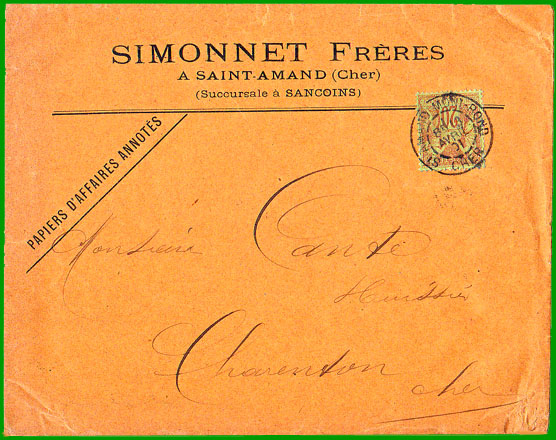 SIMONNET FRÈRES
A SAINT-AMAND (Cher)
(Succursale à SANCOINS)
PAPIERS D'AFFAIRES ANNOTÉS
ST AMAND MONT-ROND
AVRIL
CHER
Monsieur
Huissier
Charenton
cher